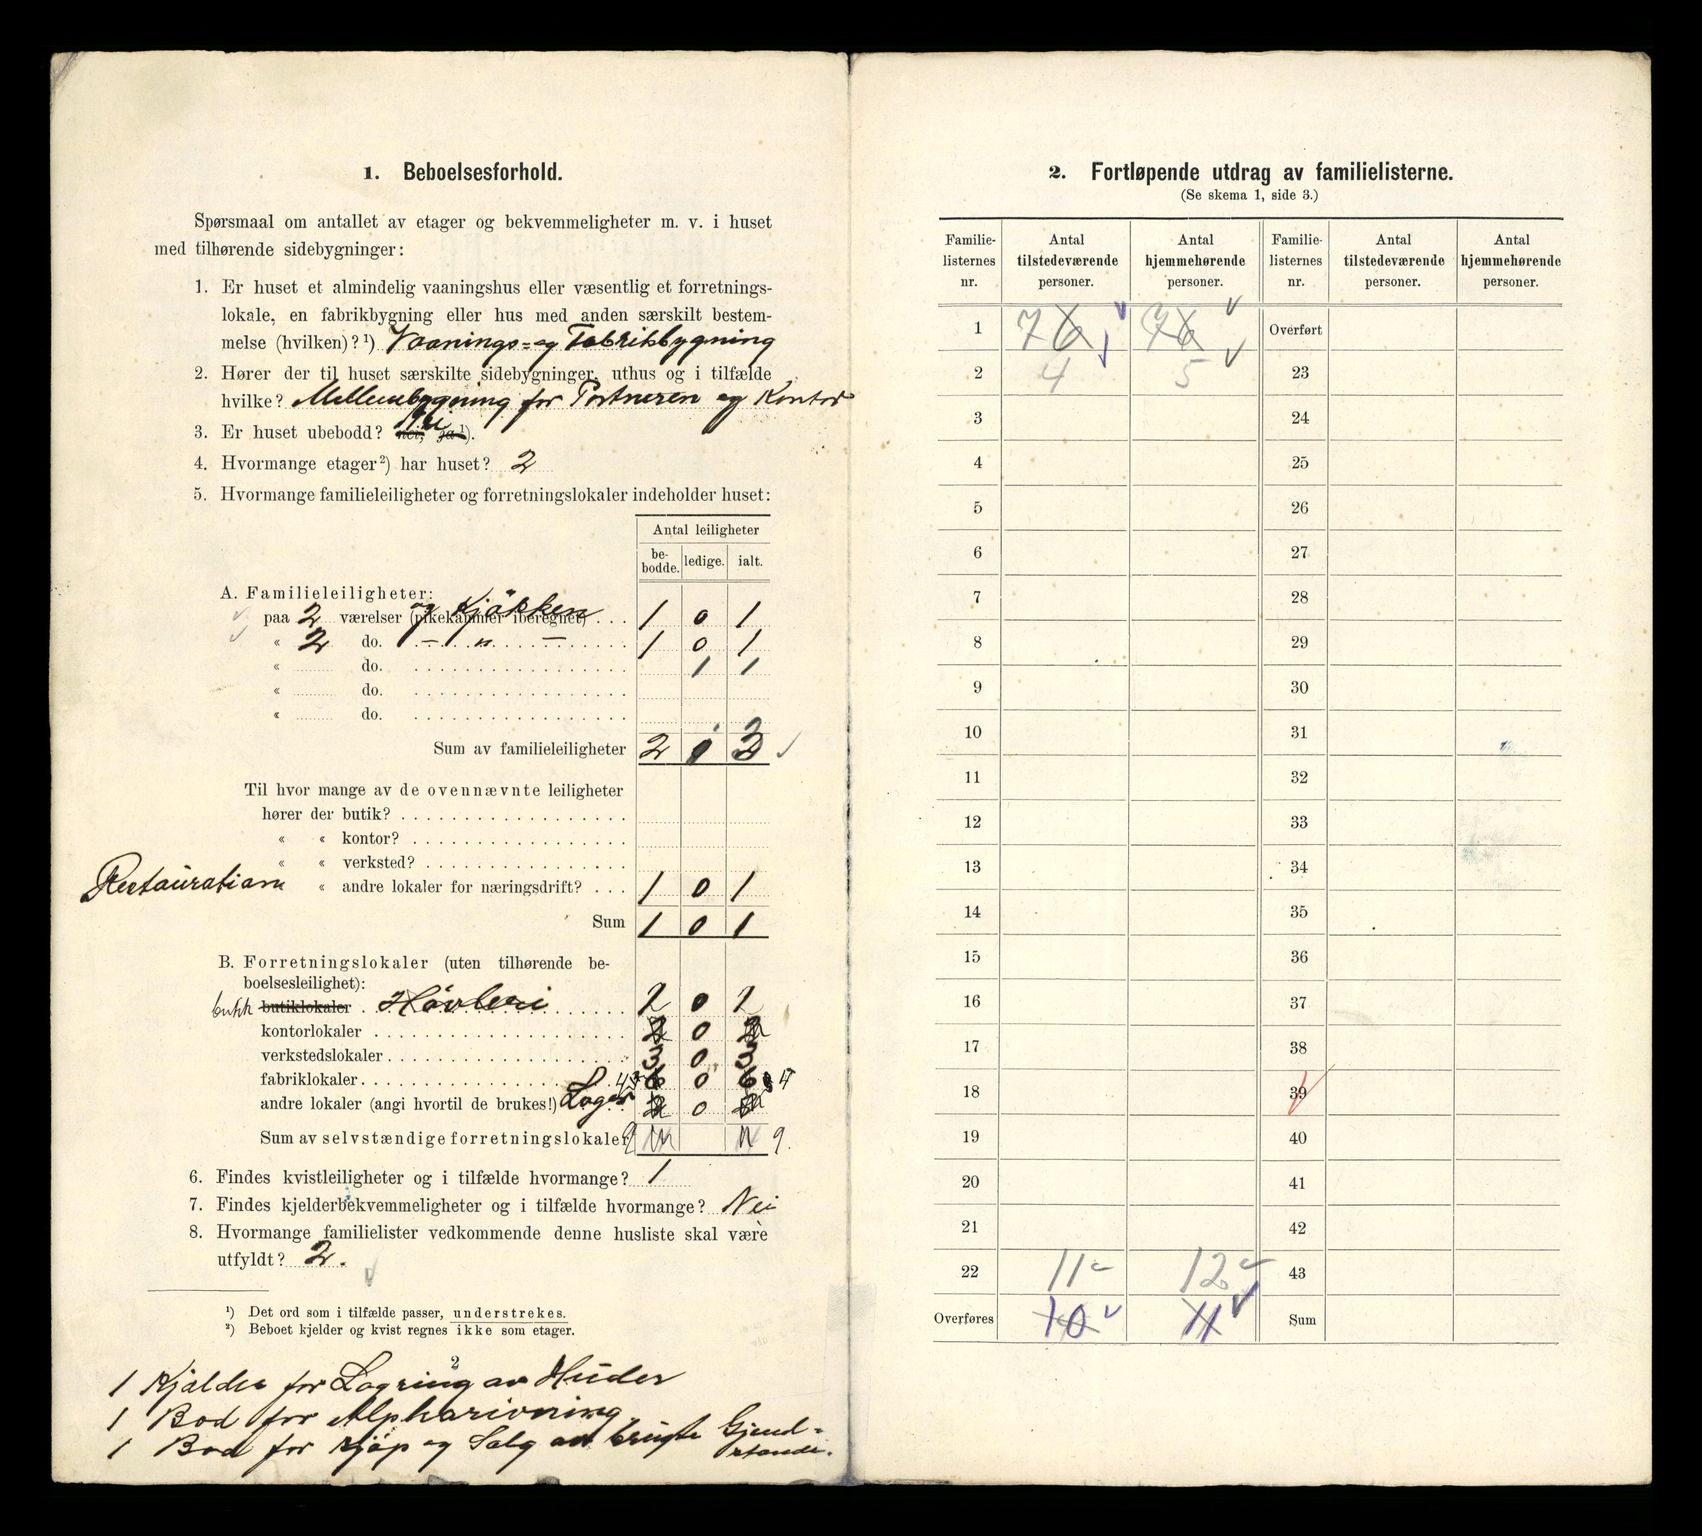 1. Beboelsesforhold.
Spørsmaal om antallet av etager og bekvemmeligheter m. v. i huset
med tilhørende sidebygninger:
1. Er huset et almindelig vaaningshus eller væsentlig et forretnings-
lokale, en fabrikbygning eller hus med anden særskilt bestem-
melse (hvilken)?¹) Vaanings- og Fabrikbygning
2. Hører der til huset særskilte sidebygninger, uthus og i tilfælde
hvilke? Mellembygning for Portneren og Kontor
3. Er huset ubebodd? nei, ja ¹). Nei
4. Hvormange etager²) har huset? 2
5. Hvormange familieleiligheter og forretningslokaler indeholder huset:
Antal leiligheter
be-bodde. ledige. ialt.
A. Familieleiligheter:
paa 2 værelser (pikekammer iberegnet) og Kjøkken . . . 1 0 1
« 2 do. — „ — 1 0 1
« do. 1 1
« do.
« do.
Sum av familieleiligheter 2 1 3
Til hvor mange av de ovennævnte leiligheter
hører der butik?
« « kontor?
« « verksted?
Restauration « andre lokaler for næringsdrift? . . . 1 0 1
Sum 1 0 1
B. Forretningslokaler (uten tilhørende be-
boelsesleilighet):
butik butiklokaler . Høvleri 2 0 2
kontorlokaler 0
verkstedslokaler 3 0 3
fabriklokaler 6 0 6
andre lokaler (angi hvortil de brukes!) Lager 0
Sum av selvstændige forretningslokaler 9 9.
6. Findes kvistleiligheter og i tilfælde hvormange? 1
7. Findes kjelderbekvemmeligheter og i tilfælde hvormange? Nei
8. Hvormange familielister vedkommende denne husliste skal være
utfyldt? 2.
¹) Det ord som i tilfælde passer, understrekes.
²) Beboet kjelder og kvist regnes ikke som etager.
2
1 Kjælder for Lagring av Huder
1 Bod for
1 Bod for Kjøp og Salg av brugte Gjend-
stande.
2. Fortløpende utdrag av familielisterne.
(Se skema 1, side 3.)
Familie-listernes nr. Antal tilstedeværende personer. Antal hjemmehørende personer. Familie-listernes nr. Antal tilstedeværende personer. Antal hjemmehørende personer.
1 7 6 7 6 Overført
2 4 5 23
3 24
4 25
5 26
6 27
7 28
8 29
9 30
10 31
11 32
12 33
13 34
14 35
15 36
16 37
17 38
18 39
19 40
20 41
21 42
22 11 12 43
Overføres 10 11 Sum